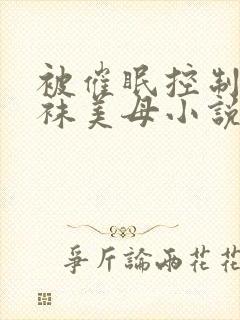 被催眠控制
袜美母小說
爭斤論兩花花